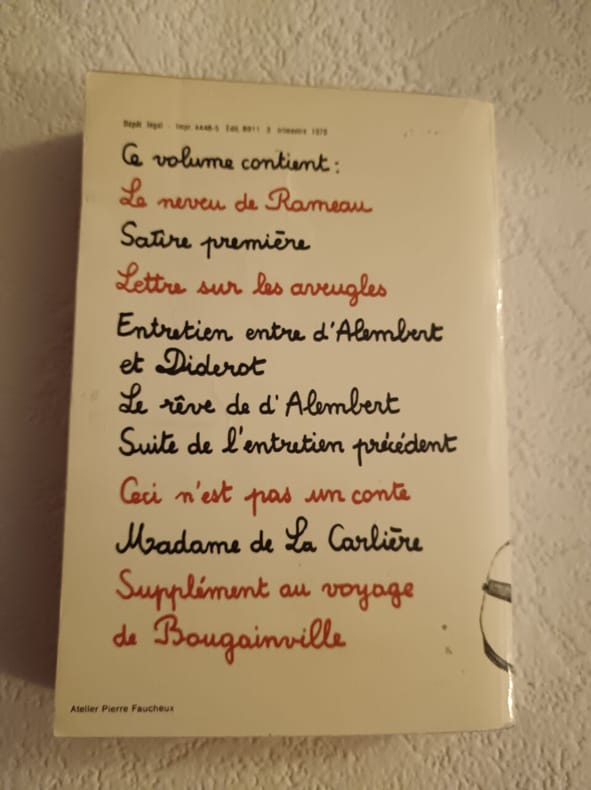 Dépôt légal - Impr. 4448-5 Édit. 8911 3 trimestre 1970
Ce volume contient :
Le neveu de Rameau
Satire première
Lettre sur les aveugles
Entretien entre d'Alembert
et Diderot
Le rêve de d'Alembert
Suite de l'entretien précédent
Ceci n'est pas un conte
Madame de La Carlière
Supplément au voyage
de Bougainville
Atelier Pierre Faucheux